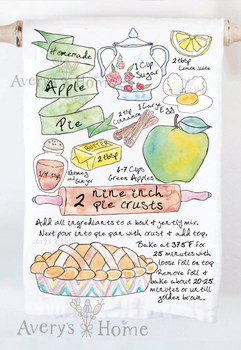 Homemade
Apple
Pie
1 Cup
Sugar
2 tbsp
Lemon Juice
1 Large
Egg
2 tsp
Cinnamon
BUTTER
2 tbsp
Nutmeg
and Ginger
6-7 Cups
Green Apples
2 nine inch
pie crusts
Add all ingredients to a bowl & gently mix.
Next pour into pie pan with crust & add top.
Bake at 375°F for
25 minutes with
loose foil on top
Remove foil &
bake about 20-25
minutes or until
golden brown.
Avery's Home
Avery's Home